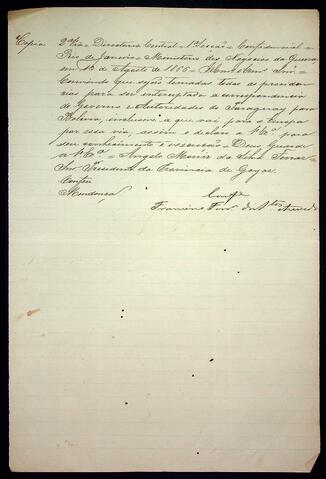 Copia 2ª via Directoria Central - 1ª Secção - Confidencial -
Rio de Janeiro - Ministerio dos Negocios da Guerra
em 12 de Agosto de 1865 - Illmo Exmo Snr -
Convindo que sejam tomadas todas as providen-
cias para ser interceptada a correspondencia
do Governo e Autoridades do Paraguay para
Bolivia, inclusive a que vai para a Europa
por essa via, assim o declaro a V. Exª para
seu conhecimento e execução - Deos Guarde
a V. Exª - Angelo Moniz da Silva Ferraz -
Snr Presidente da Provincia de Goyaz.
Conferi
Mendonça
Confe
Francisco Ferr dos Stos Azevedo